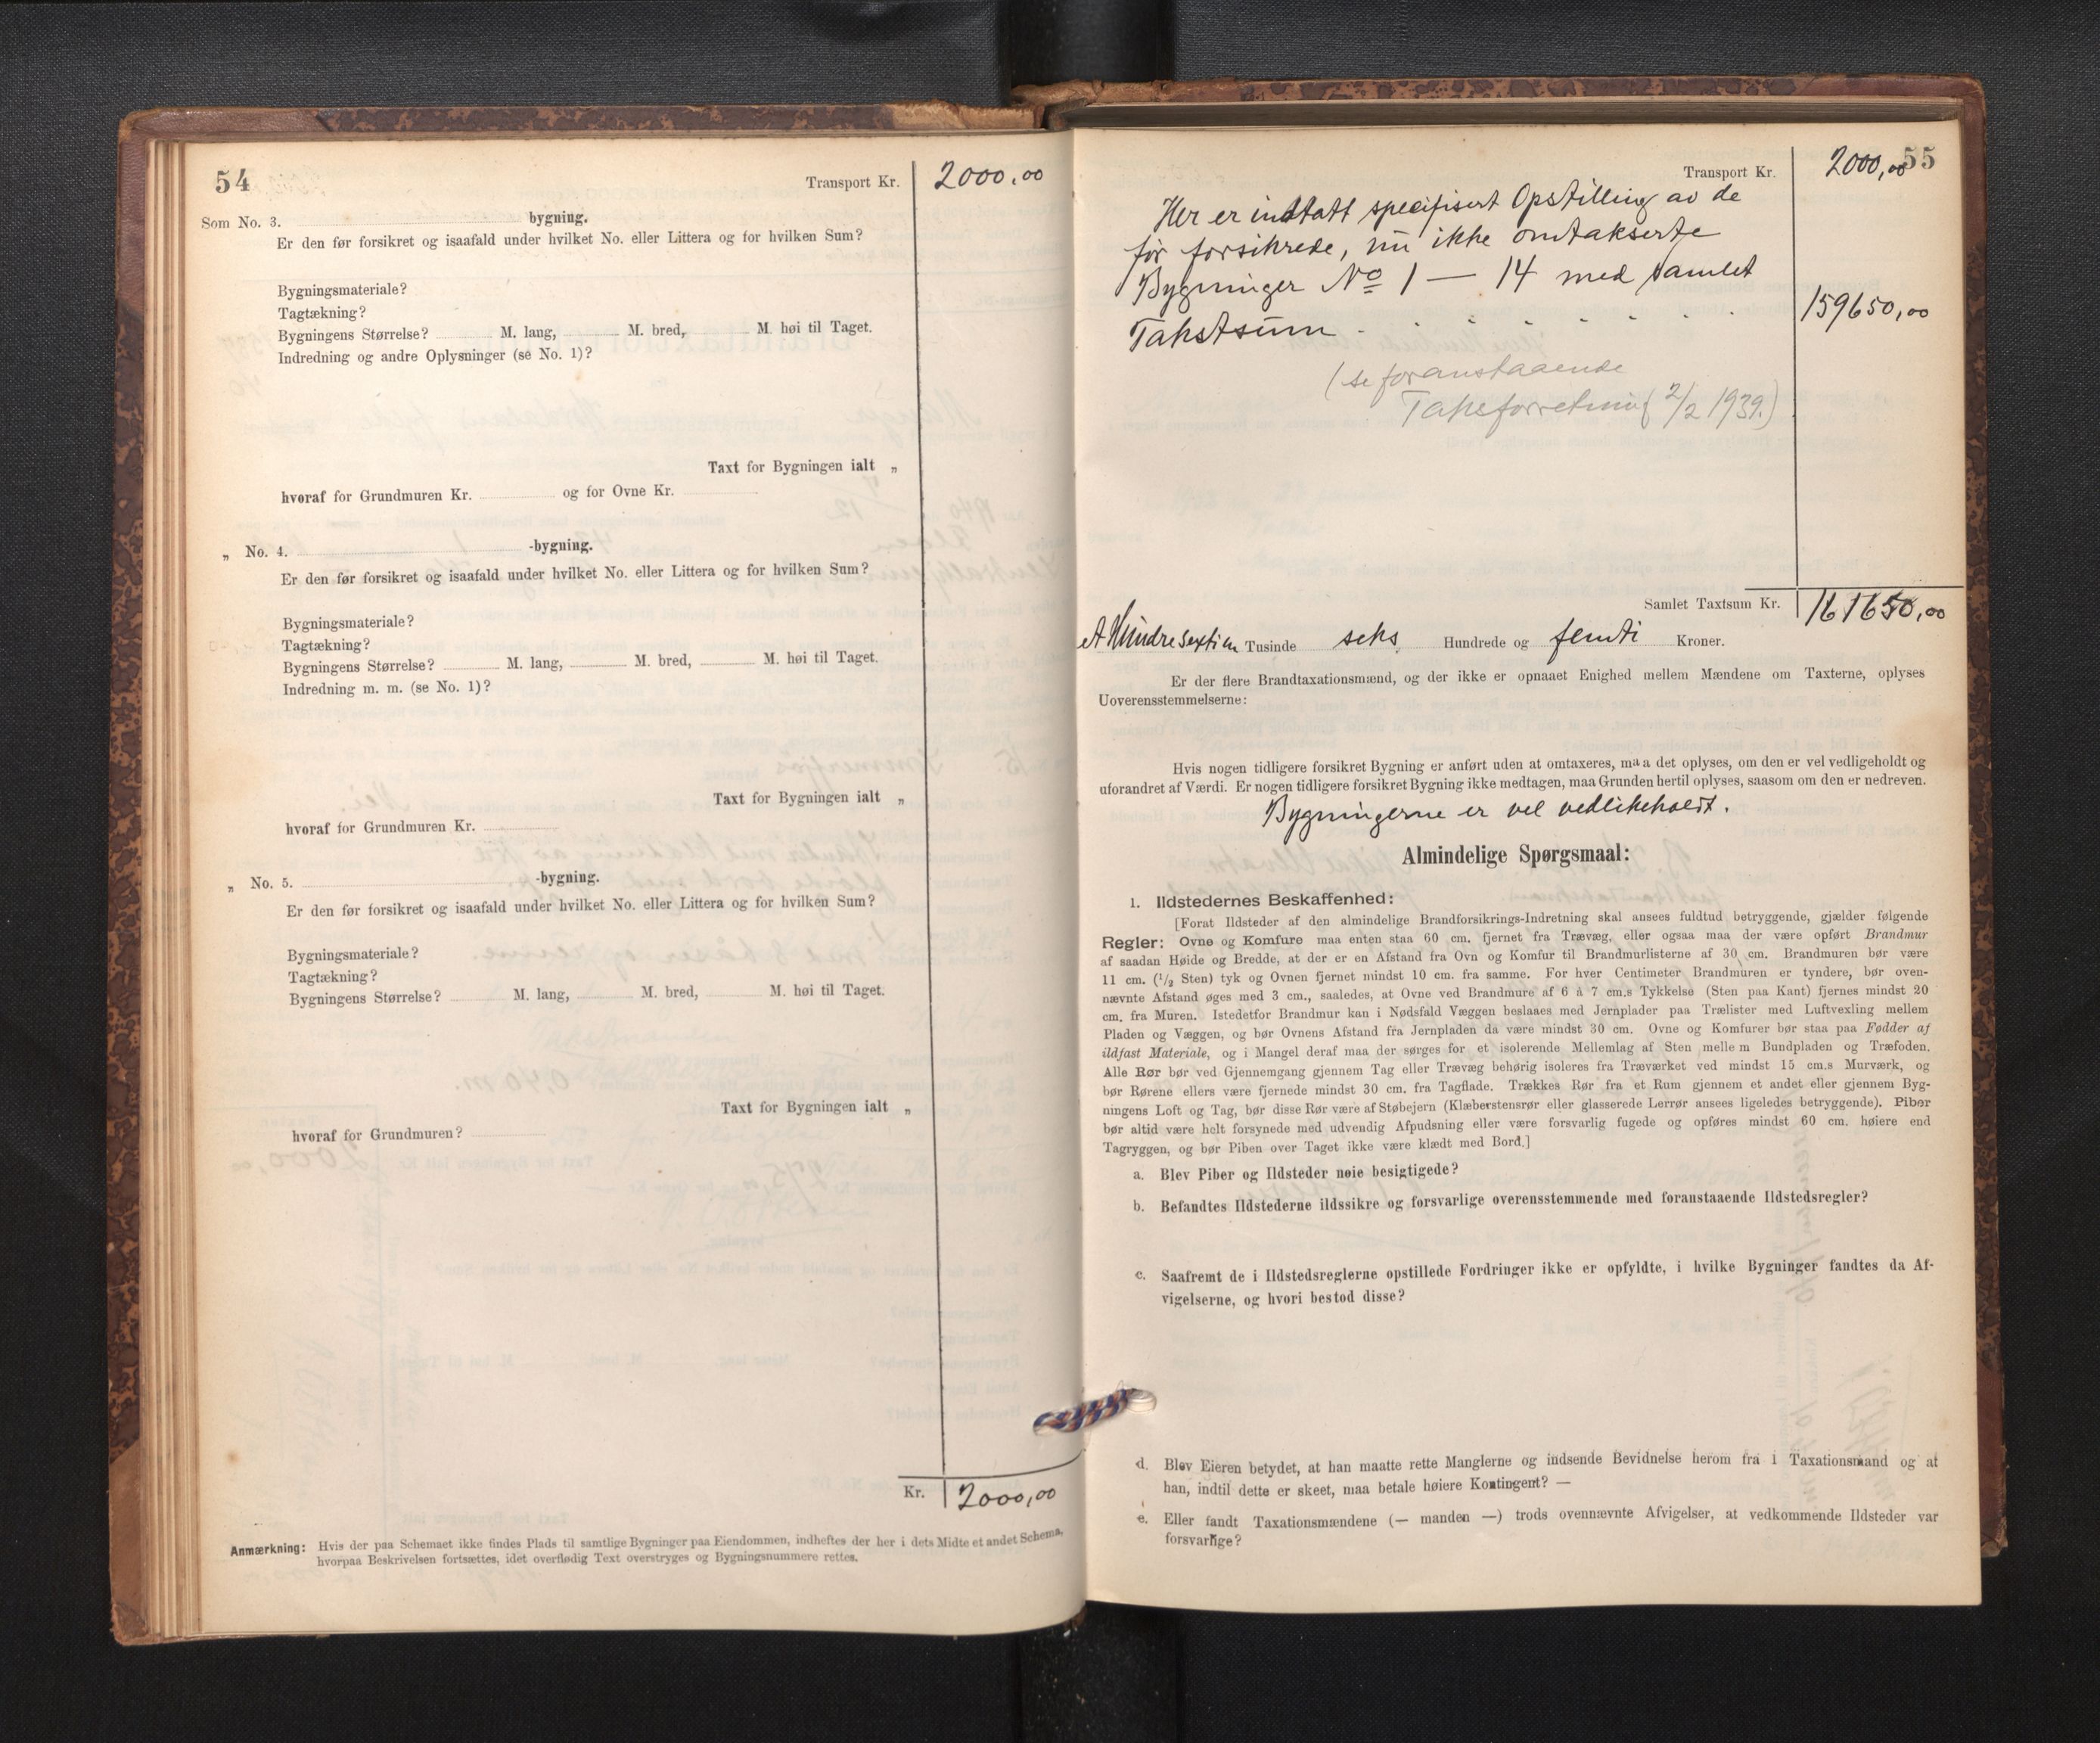 54
Transport Kr. 2000.00
Som No. 3. bygning.
Er den før forsikret og isaafald under hvilket No. eller Littera og for hvilken Sum?
Bygningsmateriale?
Tagtækning?
Bygningens Størrelse? M. lang, M. bred, M. høi til Taget.
Indredning og andre Oplysninger (se No. 1)?
Taxt for Bygningen ialt „
hvoraf for Grundmuren Kr. og for Ovne Kr.
„ No. 4. -bygning.
Er den før forsikret og isaafald under hvilket No. eller Littera og for hvilken Sum?
Bygningsmateriale?
Tagtækning?
Bygningens Størrelse? M. lang, M. bred, M. høi til Taget.
Indredning m. m. (se No. 1)?
Taxt for Bygningen ialt „
hvoraf for Grundmuren Kr.
„ No. 5. -bygning.
Er den før forsikret og isaafald under hvilket No. eller Littera og for hvilken Sum?
Bygningsmateriale?
Tagtækning?
Bygningens Størrelse? M. lang, M. bred, M. høi til Taget.
Taxt for Bygningen ialt „
hvoraf for Grundmuren?
Kr. 2000,00
Anmærkning: Hvis der paa Schemaet ikke findes Plads til samtlige Bygninger paa Eiendommen, indheftes der her i dets Midte et andet Schema,
hvorpaa Beskrivelsen fortsættes, idet overflødig Text overstryges og Bygningsnummere rettes.
55
Transport Kr. 2000,00
Her er indtatt specifisert Opstilling av de
før forsikrede, nu ikke omtakserte
Bygninger No 1 — 14 med samlet
Takstsum . . . . . . . 159650,00
(se foranstaaende
Takstforretning 2/2 1939.)
Samlet Taxtsum Kr. 161650,00
et Hundre sexti en Tusinde seks Hundrede og femti Kroner.
Er der flere Brandtaxationsmænd, og der ikke er opnaaet Enighed mellem Mændene om Taxterne, oplyses
Uoverensstemmelserne:
Hvis nogen tidligere forsikret Bygning er anført uden at omtaxeres, maa det oplyses, om den er vel vedligeholdt og
uforandret af Værdi. Er nogen tidligere forsikret Bygning ikke medtagen, maa Grunden hertil oplyses, saasom om den er nedreven.
Bygningerne er vel vedlikeholdt.
Almindelige Spørgsmaal:
1. Ildstedernes Beskaffenhed:
[Forat Ildsteder af den almindelige Brandforsikrings-Indretning skal ansees fuldtud betryggende, gjælder følgende
Regler: Ovne og Komfure maa enten staa 60 cm. fjernet fra Trævæg, eller ogsaa maa der være opført Brandmur
af saadan Høide og Bredde, at der er en Afstand fra Ovn og Komfur til Brandmurlisterne af 30 cm. Brandmuren bør være
11 cm. (1/2 Sten) tyk og Ovnen fjernet mindst 10 cm. fra samme. For hver Centimeter Brandmuren er tyndere, bør oven-
nævnte Afstand øges med 3 cm., saaledes, at Ovne ved Brandmure af 6 à 7 cm.s Tykkelse (Sten paa Kant) fjernes mindst 20
cm. fra Muren. Istedetfor Brandmur kan i Nødsfald Væggen beslaaes med Jernplader paa Trælister med Luftvexling mellem
Pladen og Væggen, og bør Ovnens Afstand fra Jernpladen da være mindst 30 cm. Ovne og Komfurer bør staa paa Fødder af
ildfast Materiale, og i Mangel deraf maa der sørges for et isolerende Mellemlag af Sten, mellem Bundpladen og Træfoden.
Alle Rør bør ved Gjennemgang gjennem Tag eller Trævæg behørig isoleres fra Træværket ved mindst 15 cm.s Murværk, og
bør Rørene ellers være fjernede mindst 30 cm. fra Tagflade. Trækkes Rør fra et Rum gjennem et andet eller gjennem Byg-
ningens Loft og Tag, bør disse Rør være af Støbejern (Klæberstensrør eller glasserede Lerrør ansees ligeledes betryggende). Piber
bør altid være helt forsynede med udvendig Afpudsning eller være forsvarlig fugede og opføres mindst 60 cm. høiere end
Tagryggen, og bør Piben over Taget ikke være klædt med Bord.]
a. Blev Piber og Ildsteder nøie besigtigede?
b. Befandtes Ildstederne ildssikre og forsvarlige overensstemmende med foranstaaende Ildstedsregler?
c. Saafremt de i Ildstedsreglerne opstillede Fordringer ikke er opfyldte, i hvilke Bygninger fandtes da Af-
vigelserne, og hvori bestod disse?
d. Blev Eieren betydet, at han maatte rette Manglerne og indsende Bevidnelse herom fra 1 Taxationsmand og at
han, indtil dette er skeet, maa betale høiere Kontingent? —
e. Eller fandt Taxationsmændene (— manden —) trods ovennævnte Afvigelser, at vedkommende Ildsteder var
forsvarlige?